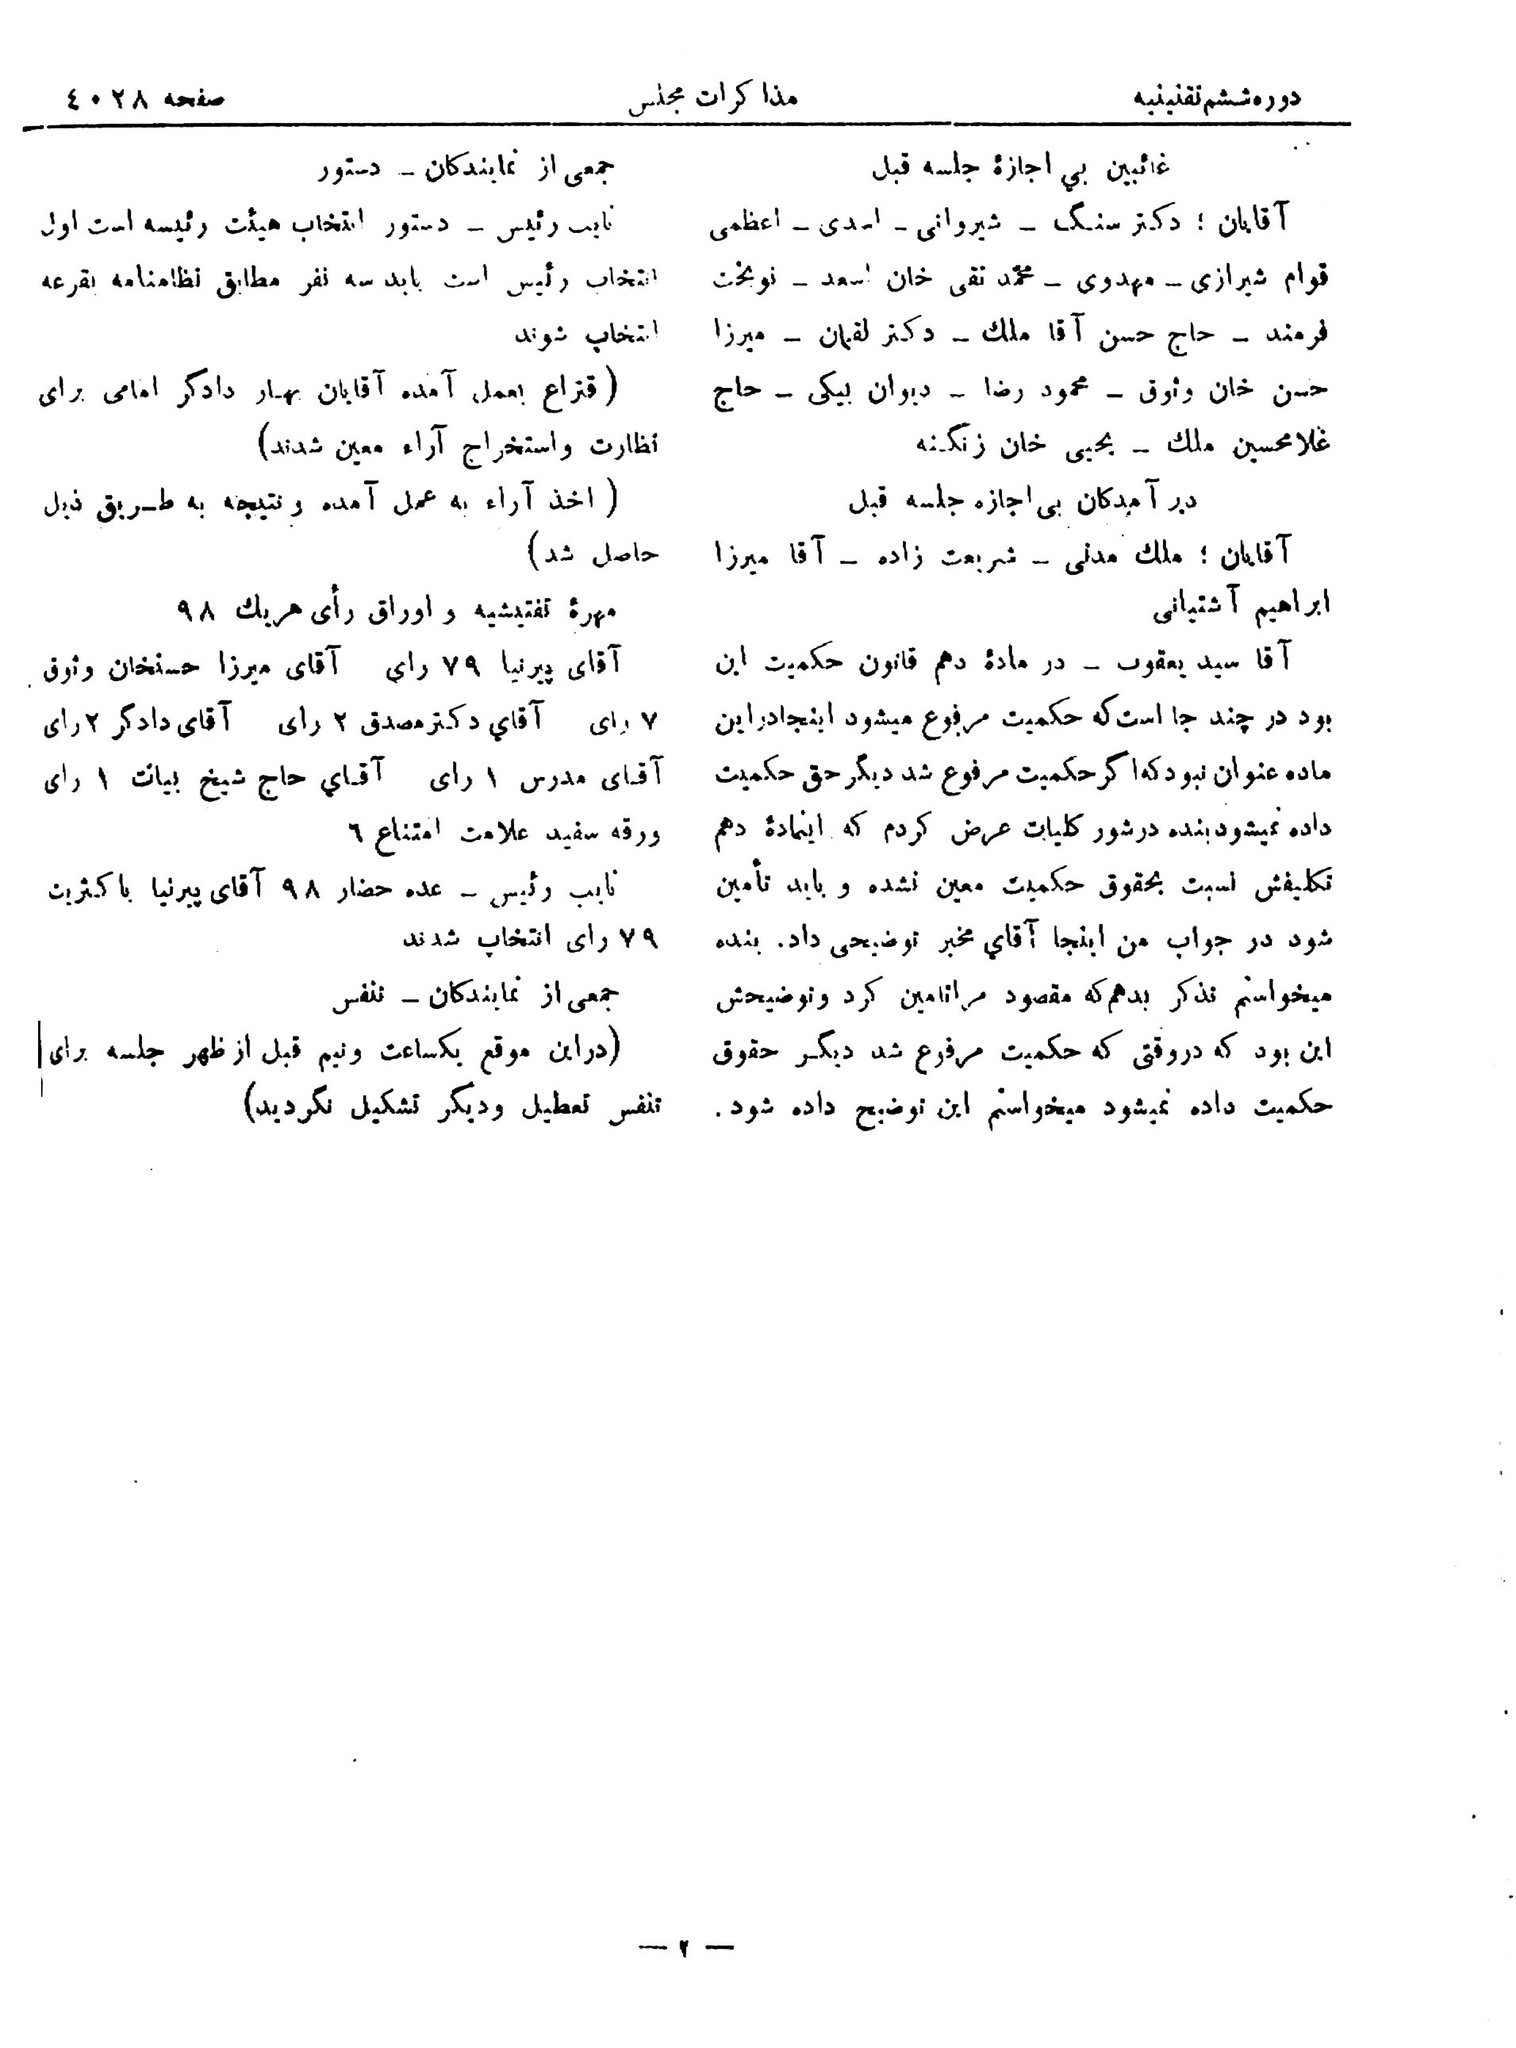 دوره ششم تقنینیه
مذاکرات مجلس
صفحه ٤٠٢٨
غائبین بي اجازهٔ جلسه قبل
آقایان ؛ دکتر سنگ ـ شیروانی ـ اسدی ـ اعظمی
قوام شیرازی ـ مهدوی ـ محمد تقی خان اسعد ـ نوبخت
فرمند ـ حاج حسن آقا ملك ـ دکتر لقمان ـ میرزا
حسن خان وثوق ـ محمود رضا ـ دیوان بیکی ـ حاج
غلامحسین ملك ـ یحیی خان زنگنه
دیر آمدکان بی اجازه جلسه قبل
آقایان ؛ ملك مدنی ـ شریعت زاده ـ آقا میرزا
ابراهیم آشتیانی
آقا سید یعقوب ـ در مادهٔ دهم قانون حکمیت این
بود در چند جا است که حکمیت مرفوع میشود اینجادراین
ماده عنوان نبود که اگر حکمیت مرفوع شد دیگر حق حکمیت
داده نمیشود بنده درشور کلیات عرض کردم که اینمادهٔ دهم
تکلیفش نسبت بحقوق حکمیت معین نشده و باید تأمین
شود در جواب من اینجا آقاي مخبر توضیحی داد. بنده
میخواستم تذکر بدهم که مقصود مراتامین کرد وتوضیحش
این بود که دروقتی که حکمیت مرفوع شد دیگر حقوق
حکمیت داده نمیشود میخواستم این توضیح داده شود.
جمعی از نمایندکان ـ دستور
نایب رئیس ـ دستور انتخاب هیئت رئیسه است اول
انتخاب رئیس است باید سه نفر مطابق نظامنامه بقرعه
انتخاب شوند
(قتراع بعمل آمده آقایان بهار دادگر امامی برای
نظارت واستخراج آراء معین شدند)
(اخذ آراء به عمل آمده و نتیجه به طریق ذیل
حاصل شد)
مهرهٔ تفتیشیه و اوراق رأی هریك ٩٨
آقای پیرنیا ٧٩ رای آقای میرزا حسنخان وثوق
٧ رای آقاي دکترمصدق ٢ رای آقای دادگر ٢ رای
آقای مدرس ١ رای آقاي حاج شیخ بیات ١ رای
ورقه سفید علامت امتناع ٦
نایب رئیس ـ عده حضار ٩٨ آقای پیرنیا باکثریت
٧٩ رای انتخاب شدند
جمعی از نمایندکان ـ تنفس
(دراین موقع یکساعت ونیم قبل از ظهر جلسه برای
تنفس تعطیل ودیگر تشکیل نگردید)
— ٢ —